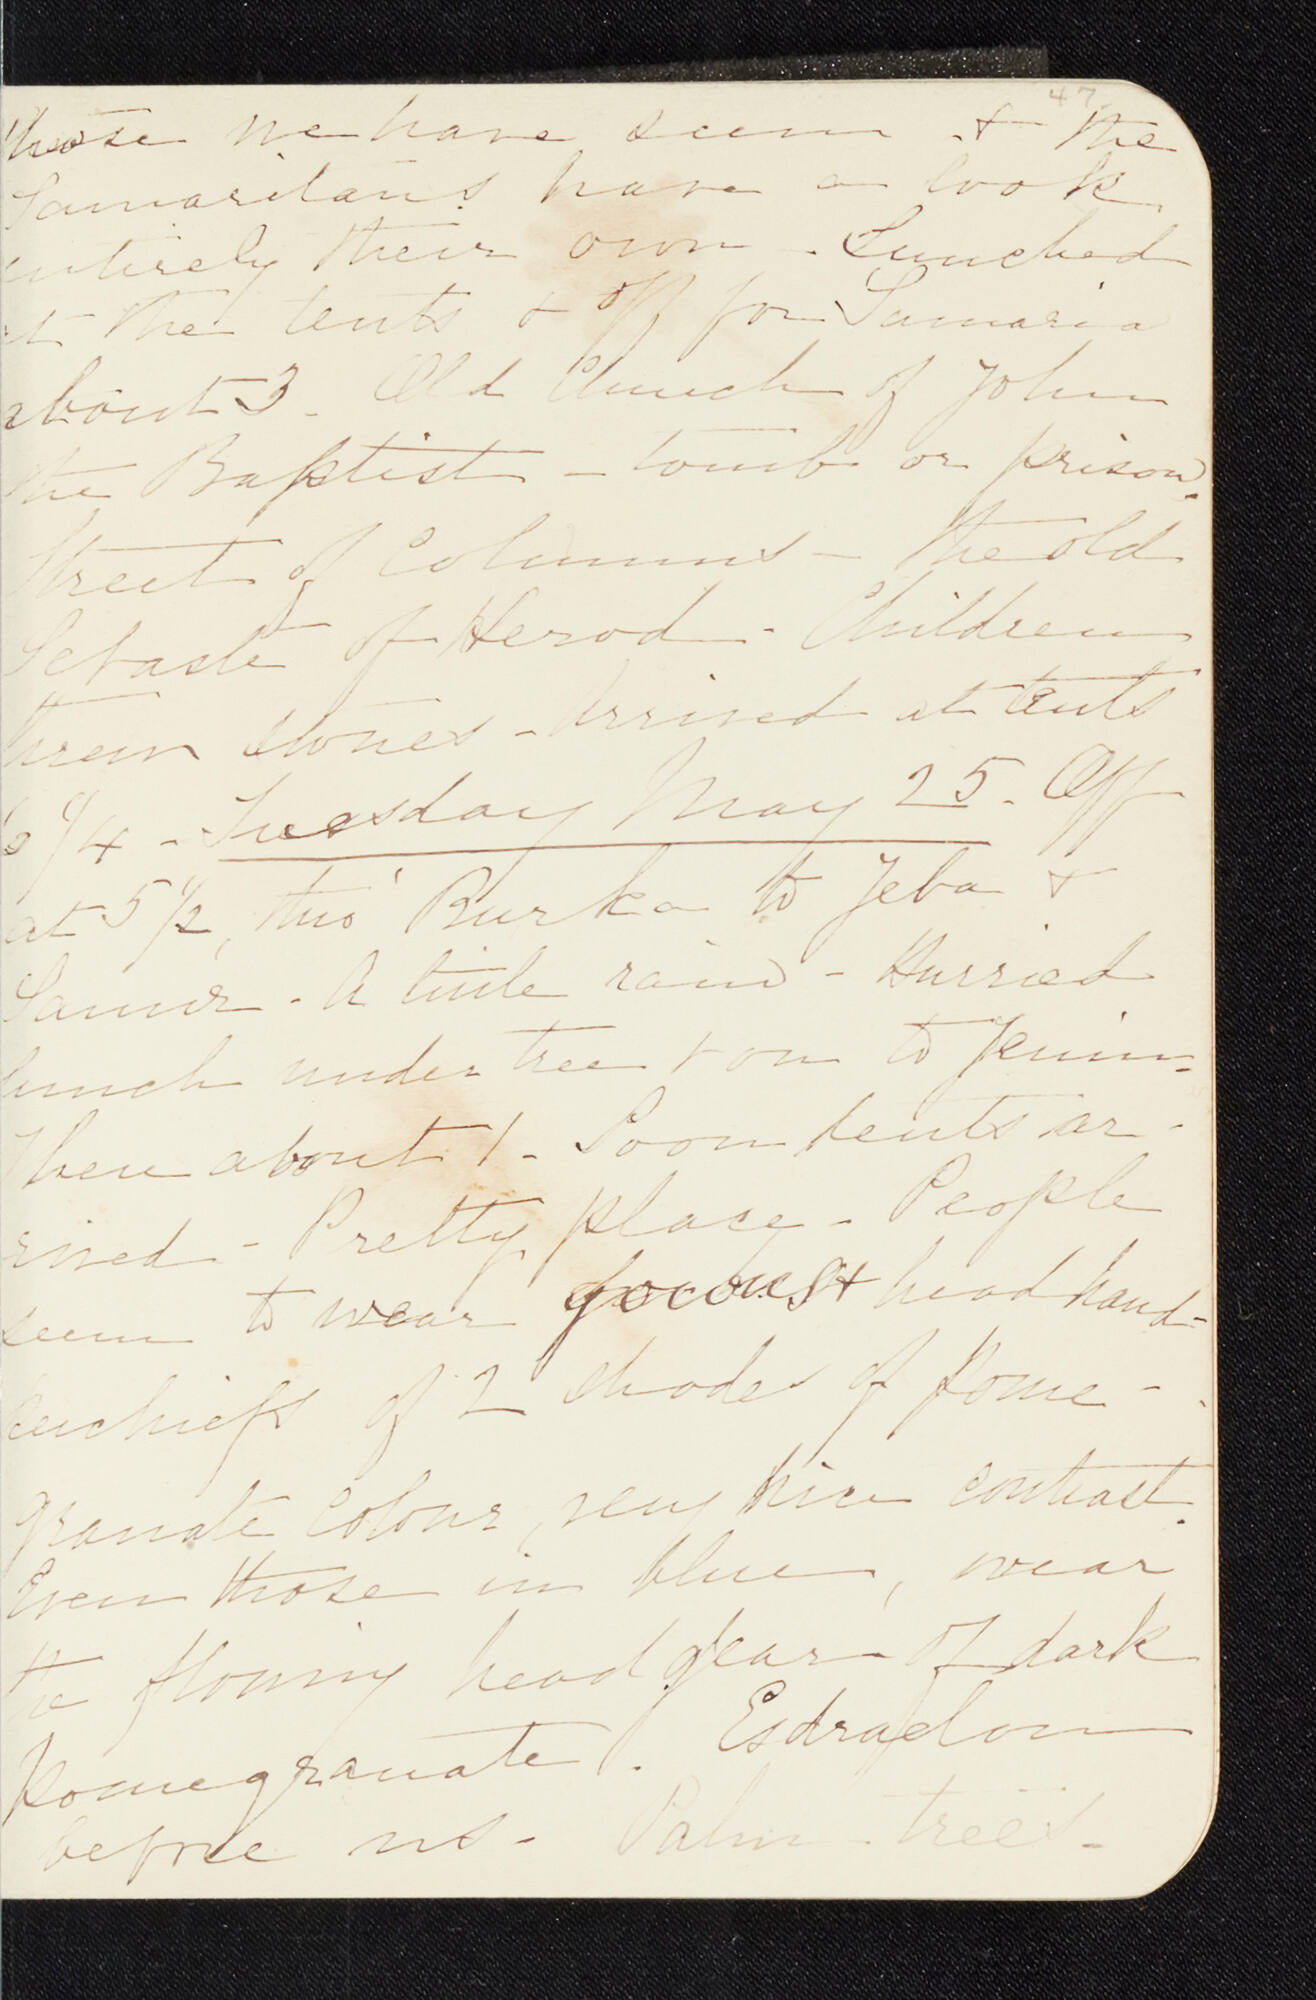 47.
those we have seen & the
Samaritans have a look
entirely their own - Lunched
at the tents & off for Samaria
about 3 - Old Church of John
the Baptist - tomb or prison.
Street of Columns - the old
Sebaste of Herod - Children
threw stones - Arrived at tents
6 1/4 - Tuesday May 25. Off
at 5 1/2, thro' Burka to Jeba &
Sanur - A little rain - Hurried
lunch under tree & on to Jenin -
There about 1 - Soon tents ar-
rived - Pretty place - People
seem to wear head hand-
kerchiefs of 2 shades of pome-
granate colour, very nice contrast.
Even those in blue, wear
the flowing head gear of dark
pomegranate. Esdraelon
before us - Palm trees -